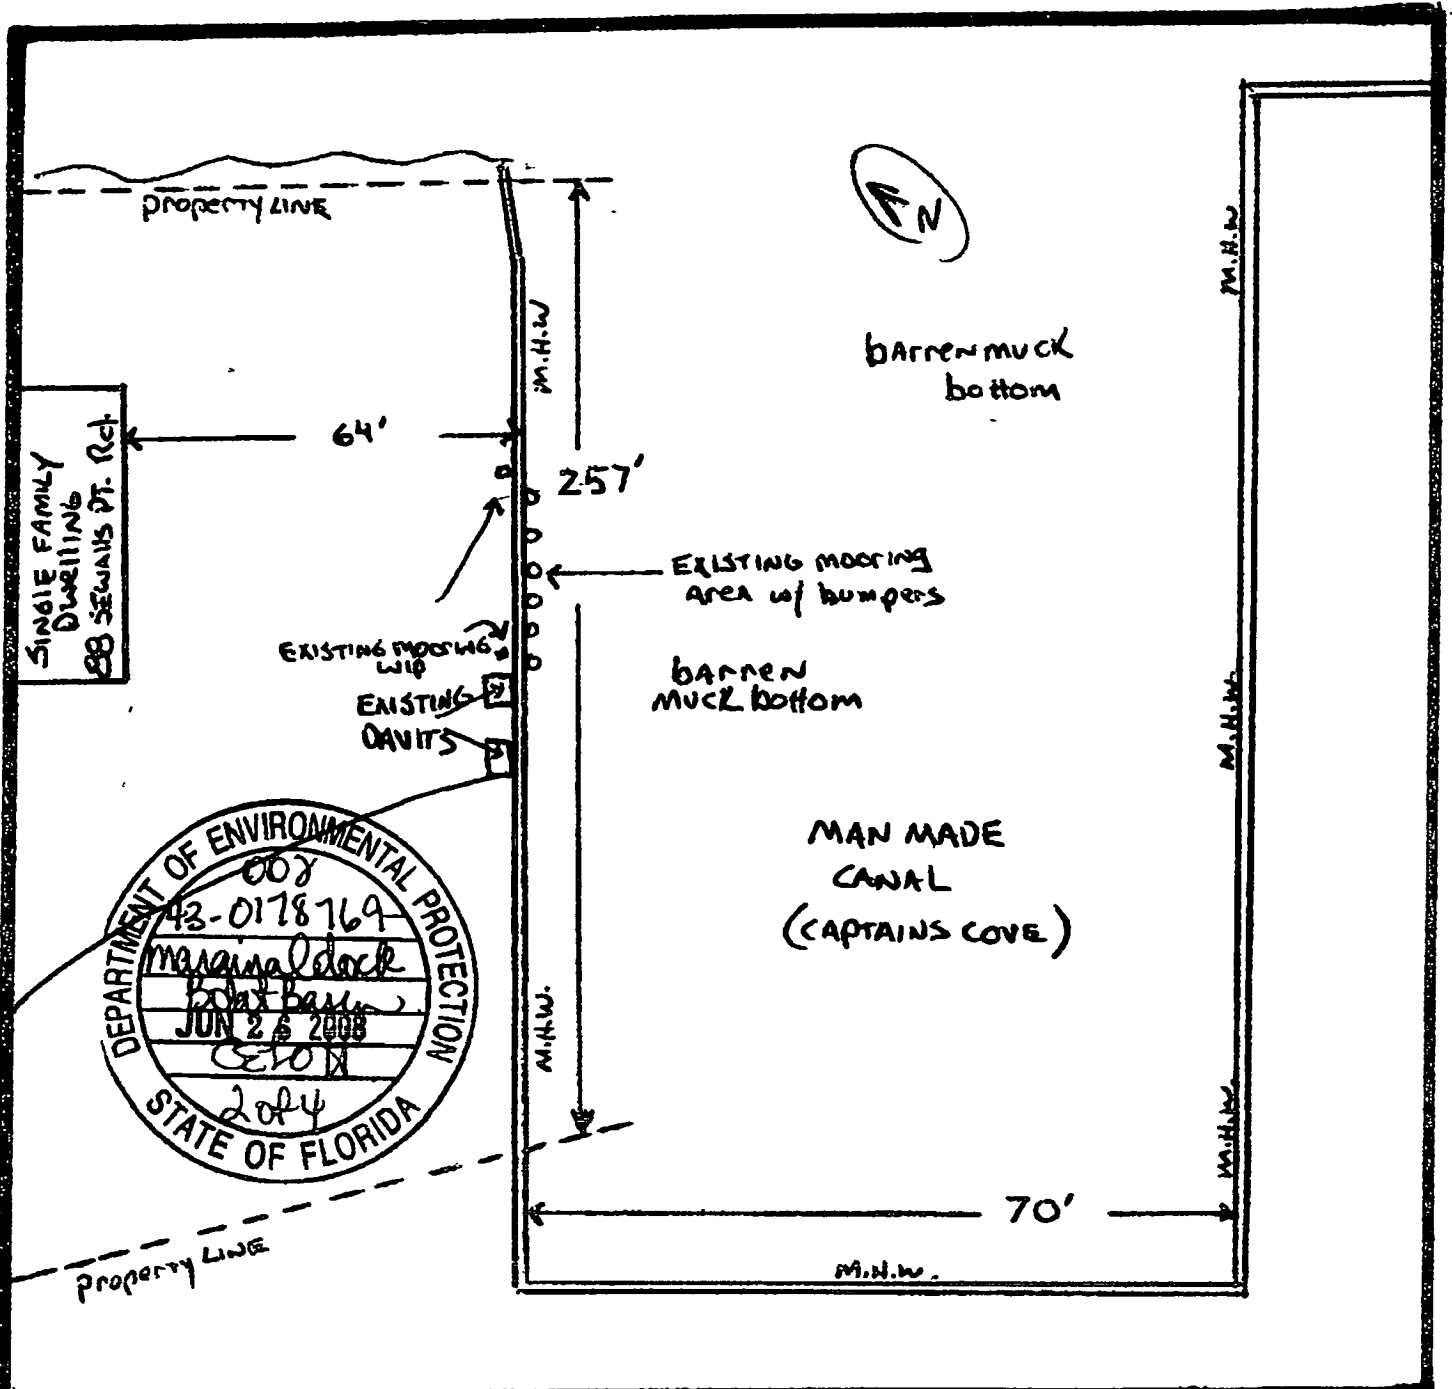 property LINE
N
M.H.W
M.H.W
barren muck
bottom
64'
257'
SINGLE FAMILY
Dwelling
88 SEWALLS PT. Rd.
EXISTING mooring
area w/ bumpers
EXISTING MOORING
EXISTING
DAVITS
barren
muck bottom
M.H.W.
MAN MADE
CANAL
(CAPTAINS COVE)
DEPARTMENT OF ENVIRONMENTAL PROTECTION
STATE OF FLORIDA
43-0178769
marginal dock
Boat Basin
JUN 26 2008
2 of 4
M.H.W.
M.H.W.
70'
property LINE
M.H.W.